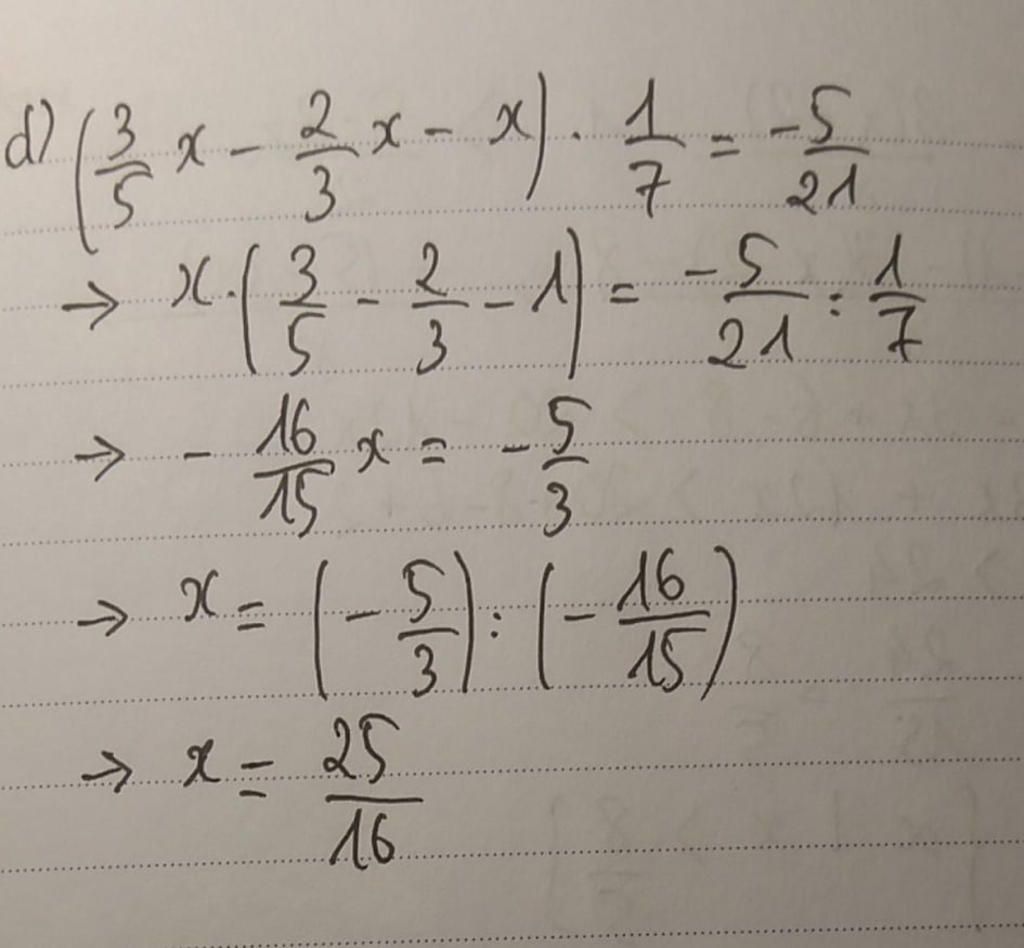 d) (3/5 x - 2/3 x - x) · 1/7 = -5/21
→ x·(3/5 - 2/3 - 1) = -5/21 : 1/7
→ - 16/15 x = - 5/3
→ x = (- 5/3) : (- 16/15)
→ x = 25/16